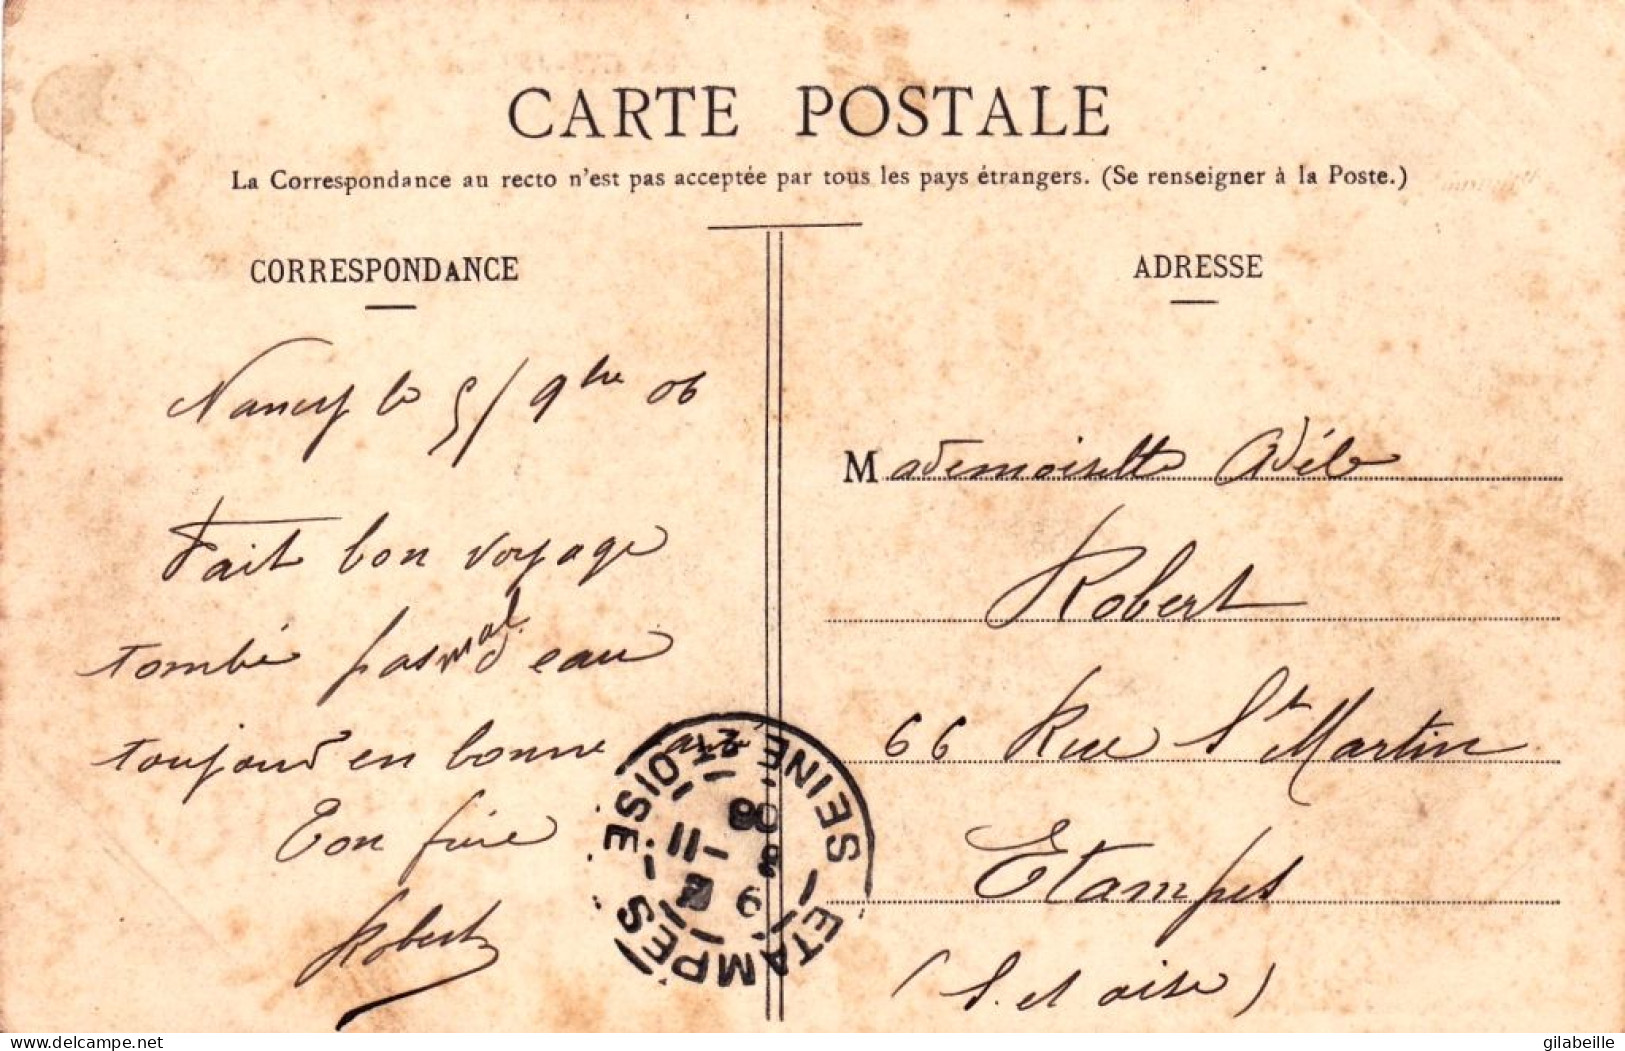 CARTE POSTALE
La Correspondance au recto n'est pas acceptée par tous les pays étrangers. (Se renseigner à la Poste.)
CORRESPONDANCE
Nancy le 5/9bre 06
Fait bon voyage
tombé pas mal d'eau
toujours en bonne
Ton frère
Robert
ADRESSE
Mademoiselle Adèle
Robert
66 Rue St Martin
Etampes
(S. et oise)
ETAMPES SEINE-ET-OISE
delcampe.net
gilabeille